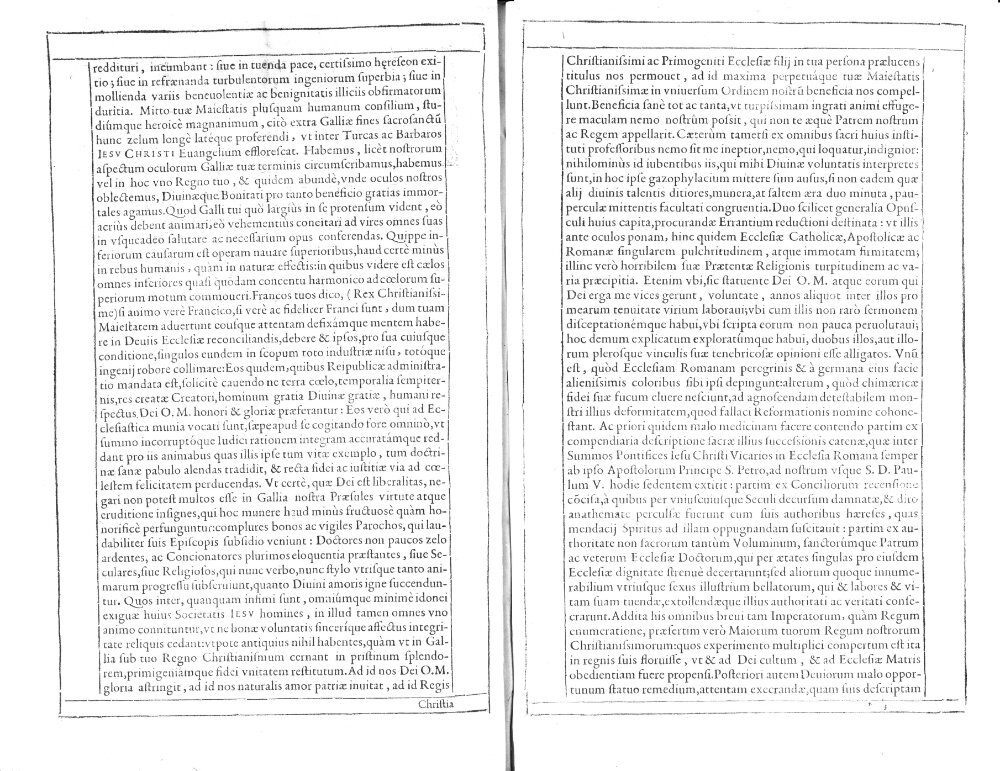 reddituri, incumbant: ſiue in tuenda pace, certiſſimo hęreſeon exi-
tio; ſiue in refrænanda turbulentorum ingeniorum ſuperbia; ſiue in
mollienda variis beneuolentiæ ac benignitatis illiciis obfirmatorum
duritia. Mitto tuæ Maieſtatis pluſquam humanum conſilium, ſtu-
diúmque heroicè magnanimum, citò extra Galliæ fines ſacroſanctũ
hunc zelum longè latéque proferendi, vt inter Turcas ac Barbaros
IESV CHRISTI Euangelium effloreſcat. Habemus, licèt noſtrorum
aſpectum oculorum Galliæ tuæ terminis circumſcribamus, habemus
vel in hoc vno Regno tuo, & quidem abundè, vnde oculos noſtros
oblectemus, Diuinæque Bonitati pro tanto beneficio gratias immor-
tales agamus. Quod Galli tui quò largiùs in ſe protenſum vident, eò
acriùs debent animari, eò vehementiùs concitari ad vires omnes ſuas
in vſqueadeo ſalutare ac neceſſarium opus conferendas. Quippe in-
feriorum cauſarum eſt operam nauare ſuperioribus, haud certè minùs
in rebus humanis, quàm in naturæ effectis: in quibus videre eſt cœlos
omnes inferiores quaſi quodam concentu harmonico ad cœlorum ſu-
periorum motum commoueri. Francos tuos dico, (Rex Chriſtianiſſi-
me) ſi animo verè Francico, ſi verè ac fideliter Franci ſunt, dum tuam
Maieſtatem aduertunt eouſque attentam defixámque mentem habe-
re in Deuiis Eccleſiæ reconciliandis, debere & ipſos, pro ſua cuiuſque
conditione, ſingulos eundem in ſcopum toto induſtriæ niſu, totóque
ingenij robore collimare: Eos quidem, quibus Reipublicæ adminiſtra-
tio mandata eſt, ſolicitè cauendo ne terra cœlo, temporalia ſempiter-
nis, res creatæ Creatori, hominum gratia Diuinæ gratiæ, humani re-
ſpectus Dei O. M. honori & gloriæ præferantur: Eos verò qui ad Ec-
cleſiaſtica munia vocati ſunt, ſæpe apud ſe cogitando fore omninò, vt
ſummo incorruptóque Iudici rationem integram accuratámque red-
dant pro iis animabus quas illis ipſe tum vitæ exemplo, tum doctri-
næ ſanæ pabulo alendas tradidit, & recta fidei ac iuſtitiæ via ad cœ-
leſtem felicitatem perducendas. Vt certè, quæ Dei eſt liberalitas, ne-
gari non poteſt multos eſſe in Gallia noſtra Præſules virtute atque
eruditione inſignes, qui hoc munere haud minùs fructuosè quàm ho-
norificè perfunguntur: complures bonos ac vigiles Parochos, qui lau-
dabiliter ſuis Epiſcopis ſubſidio veniunt: Doctores non paucos zelo
ardentes, ac Concionatores plurimos eloquentia præſtantes, ſiue Se-
culares, ſiue Religioſos, qui nunc verbo, nunc ſtylo vtriſque tanto ani-
marum progreſſu ſubſeruiunt, quanto Diuini amoris igne ſuccendun-
tur. Quos inter, quanquam infimi ſunt, omniúmque minimè idonei
exiguæ huius Societatis IESV homines, in illud tamen omnes vno
animo connituntur, vt ne bonæ voluntatis ſinceriſque affectus integri-
tate reliquis cedant: vtpote antiquius nihil habentes, quàm vt in Gal-
lia ſub tuo Regno Chriſtianiſmum cernant in priſtinum ſplendo-
rem, primigeniámque fidei vnitatem reſtitutum. Ad id nos Dei O.M.
gloria aſtringit, ad id nos naturalis amor patriæ inuitat, ad id Regis
Chriſtia
Chriſtianiſſimi ac Primogeniti Eccleſiæ filij in tua perſona prælucens
titulus nos permouet, ad id maxima perpetuáque tuæ Maieſtatis
Chriſtianiſſimæ in vniuerſum Ordinem noſtrũ beneficia nos compel-
lunt. Beneficia ſanè tot ac tanta, vt turpiſſimam ingrati animi effuge-
re maculam nemo noſtrûm poſſit, qui non te æquè Patrem noſtrum
ac Regem appellarit. Cæterùm tametſi ex omnibus ſacri huius inſti-
tuti profeſſoribus nemo ſit me ineptior, nemo, qui loquatur, indignior:
nihilominùs id iubentibus iis, qui mihi Diuinæ voluntatis interpretes
ſunt, in hoc ipſe gazophylacium mittere ſum auſus, ſi non eadem quæ
alij diuinis talentis ditiores, munera, at ſaltem æra duo minuta, pau-
perculæ mittentis facultati congruentia. Duo ſcilicet generalia Opuſ-
culi huius capita, procurandæ Errantium reductioni deſtinata: vt illis
ante oculos ponam, hinc quidem Eccleſiæ Catholicæ, Apoſtolicæ ac
Romanæ ſingularem pulchritudinem, atque immotam firmitatem;
illinc verò horribilem ſuæ Prætentæ Religionis turpitudinem ac va-
ria præcipitia. Etenim vbi, ſic ſtatuente Dei O. M. atque eorum qui
Dei erga me vices gerunt, voluntate, annos aliquot inter illos pro
mearum tenuitate virium laboraui; vbi cum illis non rarò ſermonem
diſceptationémque habui, vbi ſcripta eorum non pauca peruolutaui;
hoc demum explicatum exploratúmque habui, duobus illos, aut illo-
rum pleroſque vinculis ſuæ tenebricoſæ opinioni eſſe alligatos. Vnũ
eſt, quòd Eccleſiam Romanam peregrinis & à germana eius facie
alieniſſimis coloribus ſibi ipſi depingunt: alterum, quòd chimæricæ
fidei ſuæ fucum eluere neſciunt, ad agnoſcendam deteſtabilem mon-
ſtri illius deformitatem, quod fallaci Reformationis nomine cohone-
ſtant. Ac priori quidem malo medicinam facere contendo partim ex
compendiaria deſcriptione ſacræ illius ſucceſſionis catenæ, quæ inter
Summos Pontifices Ieſu Chriſti Vicarios in Eccleſia Romana ſemper
ab ipſo Apoſtolorum Principe S. Petro, ad noſtrum vſque S. D. Pau-
lum V. hodie ſedentem extitit: partim ex Conciliorum recenſione
cõciſa, à quibus per vniuſcuiuſque Seculi decurſum damnatæ, & diro
anathemate perculſæ fuerunt cum ſuis authoribus hæreſes, quas
mendacij Spiritus ad illam oppugnandam ſuſcitauit: partim ex au-
thoritate non ſacrorum tantùm Voluminum, ſanctorúmque Patrum
ac veterum Eccleſiæ Doctorum, qui per ætates ſingulas pro eiuſdem
Eccleſiæ dignitate ſtrenuè decertarunt; ſed aliorum quoque innume-
rabilium vtriuſque ſexus illuſtrium bellatorum, qui & labores & vi-
tam ſuam tuendæ, extollendæque illius authoritati ac veritati conſe-
crarunt. Addita his omnibus breui tam Imperatorum, quàm Regum
enumeratione, præſertim verò Maiorum tuorum Regum noſtrorum
Chriſtianiſſimorum: quos experimento multiplici compertum eſt ita
in regnis ſuis floruiſſe, vt & ad Dei cultum, & ad Eccleſiæ Matris
obedientiam fuere propenſi. Poſteriori autem Deuiorum malo oppor-
tunum ſtatuo remedium, attentam execrandæ, quàm ſuis deſcriptam